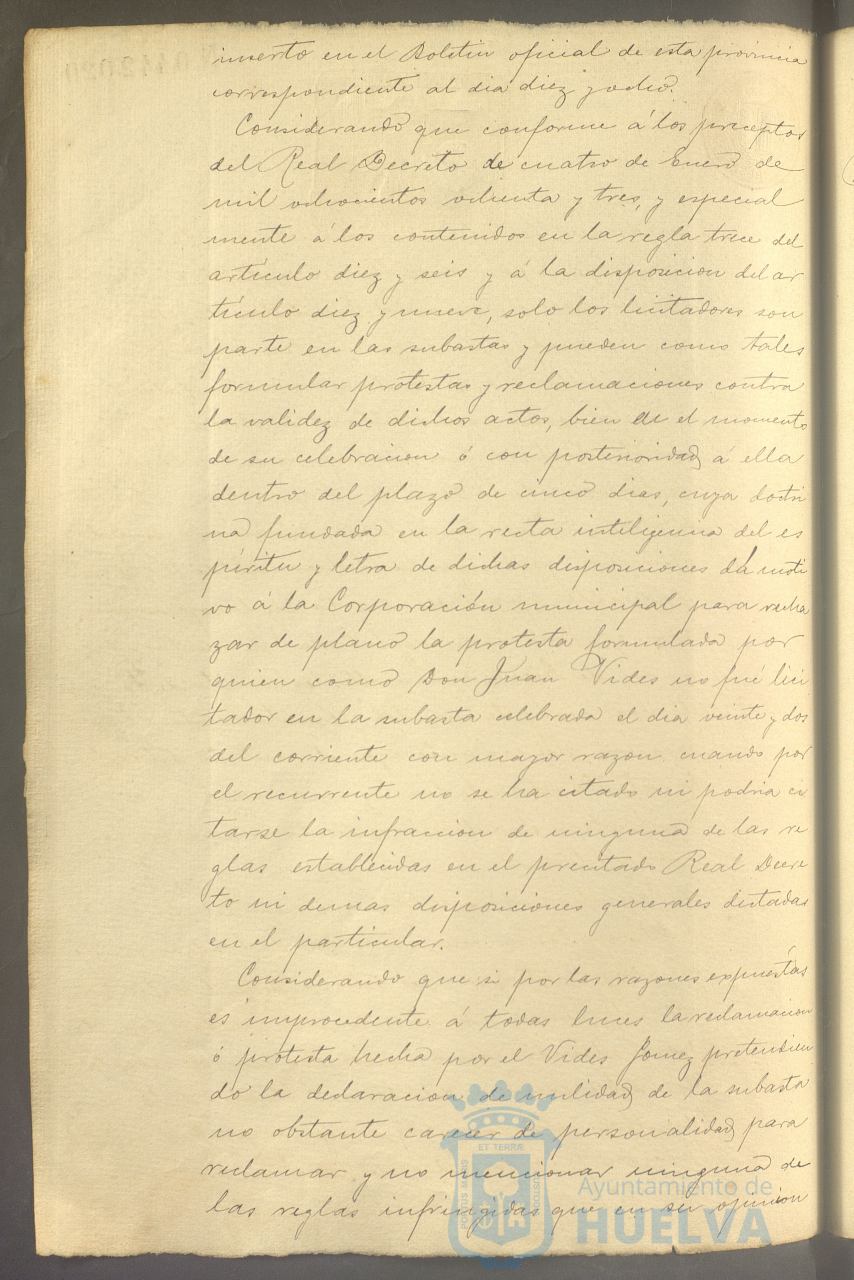 inserto en el Boletin oficial de esta provincia
correspondiente al dia diez y ocho.
Considerando que conforme á los preceptos
del Real Decreto de cuatro de Enero de
mil ochocientos ochenta y tres, y especial
mente á los contenidos en la regla trece del
artículo diez y seis y á la disposicion del ar
tículo diez y nueve, solo los licitadores son
parte en las subastas y pueden como tales
formular protestas y reclamaciones contra
la validez de dichos actos, bien en el momento
de su celebracion ó con posterioridad á ella
dentro del plazo de cinco dias, cuya doctri
na fundada en la recta inteligencia del es
píritu y letra de dichas disposiciones dá moti
vo á la Corporación municipal para recha
zar de plano la protesta formulada por
quien como Don Juan Vides no fué lici
tador en la subasta celebrada el dia veinte y dos
del corriente con mayor razon cuando por
el recurrente no se ha citado ni podria ci
tarse la infraccion de ninguna de las re
glas establecidas en el precitado Real Decre
to ni demas disposiciones generales dictadas
en el particular.
Considerando que si por las razones expuestas
es improcedente á todas luces la reclamacion
ó protesta hecha por el Vides Gomez pretendien
do la declaracion de nulidad de la subasta
no obstante carecer de personalidad para
reclamar y no mencionar ninguna de
las reglas infringidas que en su opinion
ET TERRÆ
PORTUS MARIS
CUSTODIA
Ayuntamiento de
HUELVA